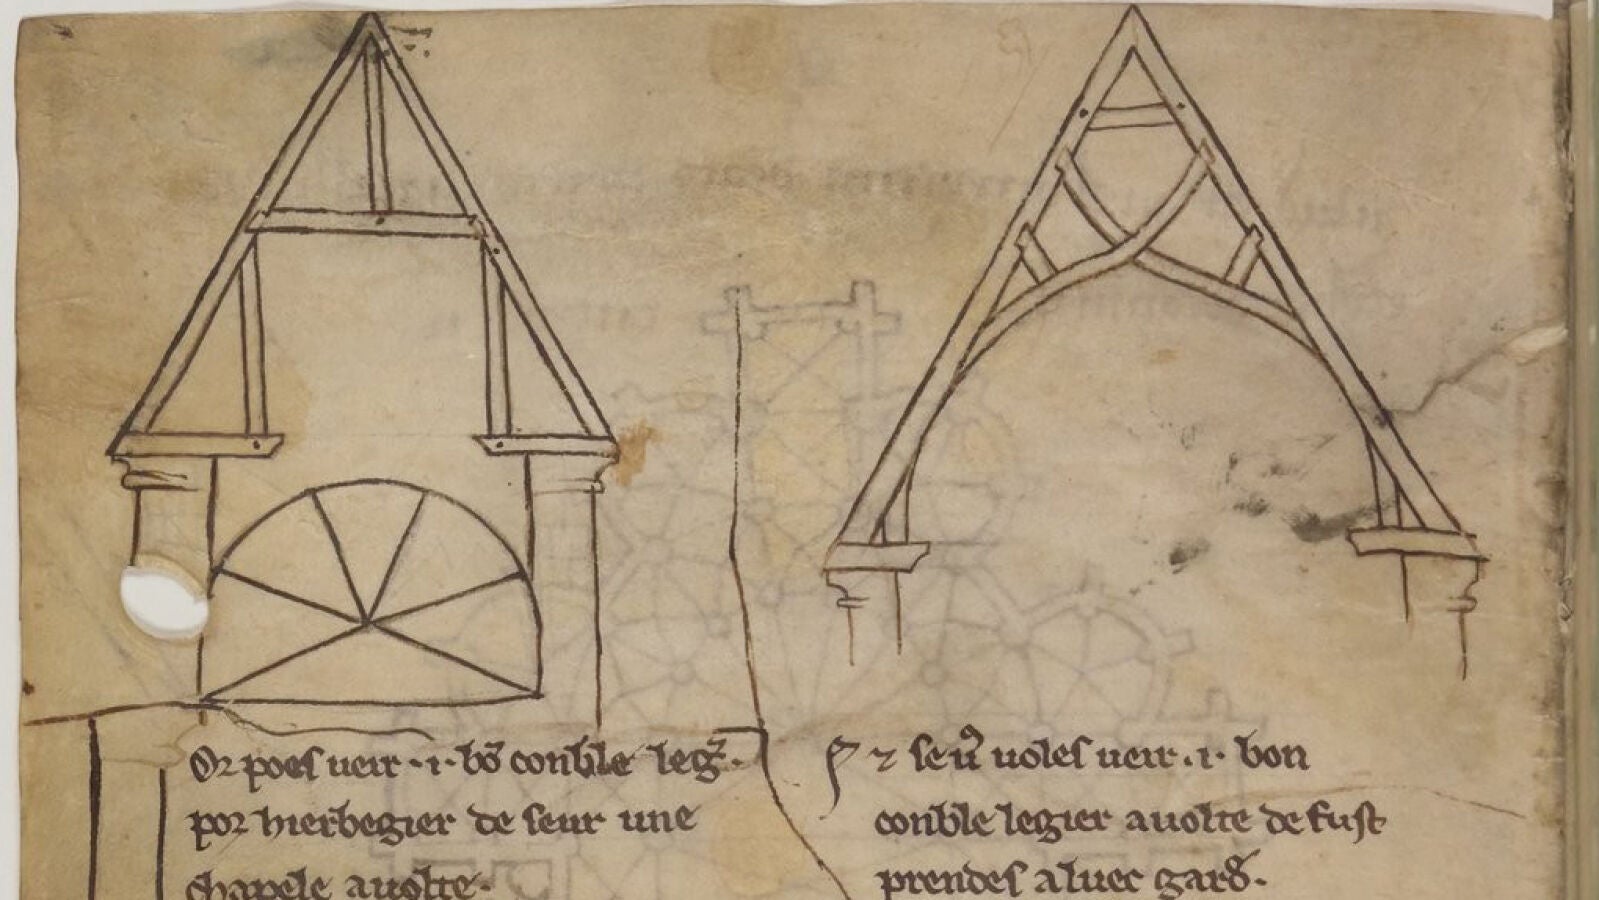 Or poes ueir .i. bō conble leg᷑.
por hierbegier de seur une
chapele auolte.
⁊ se uͦ uoles ueir .i. bon
conble legier auolte de fust
prendes aluec gard̄.